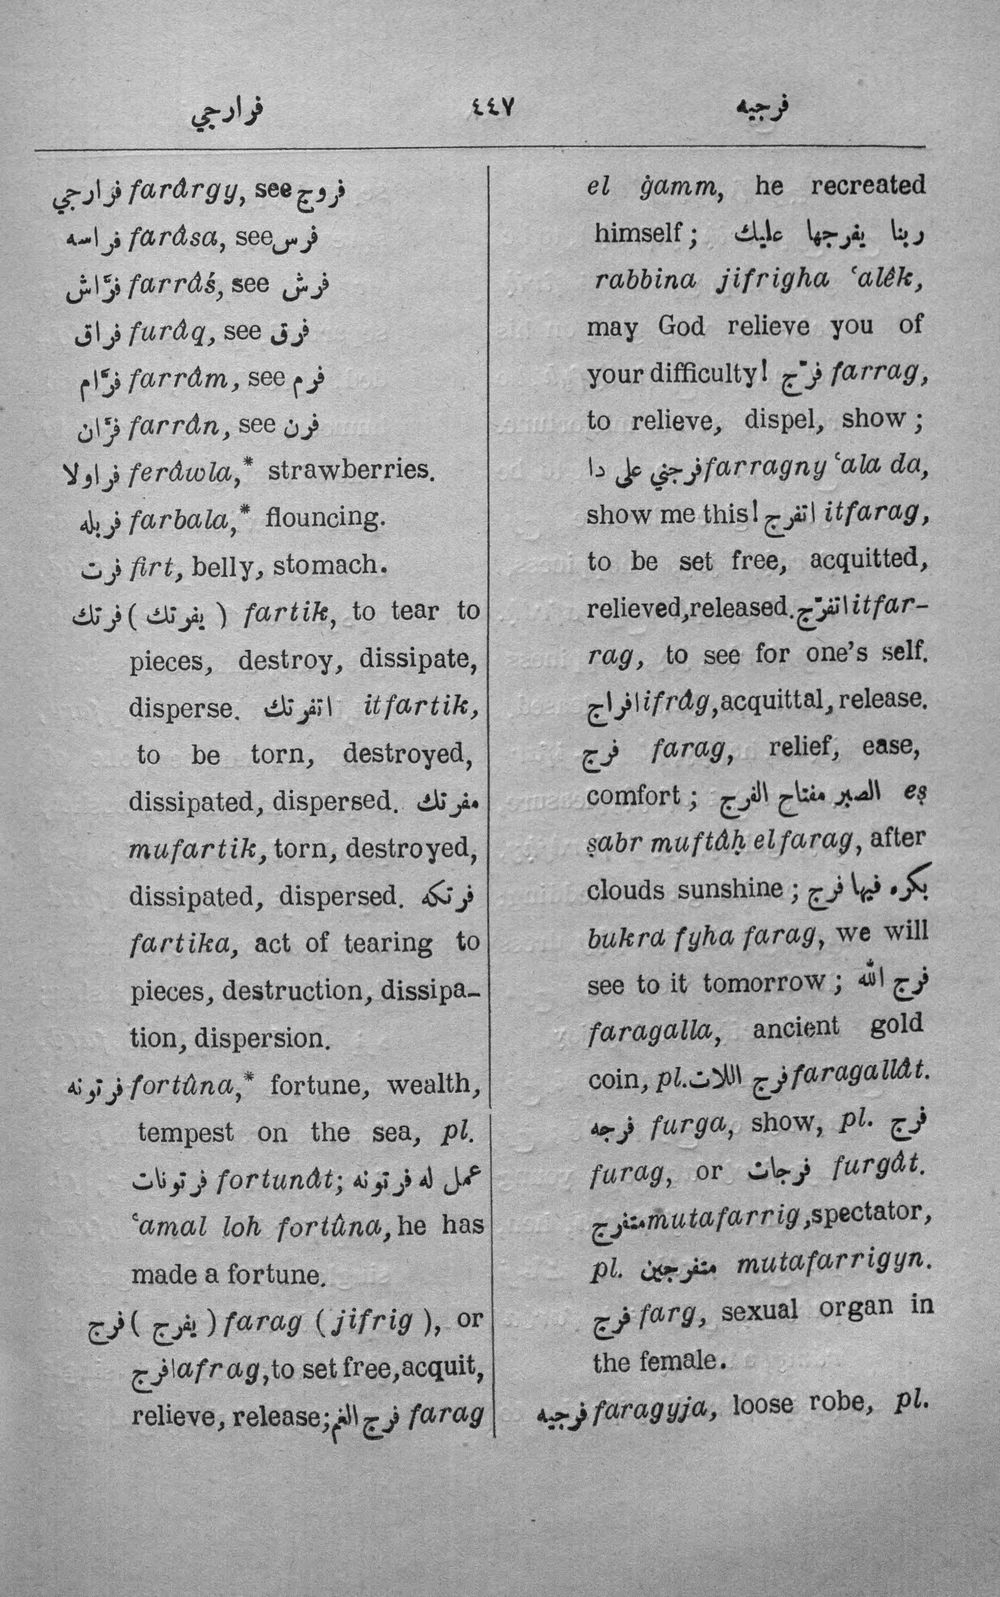 فرارجي ٤٤٧ فرجيه
فرارجي farârgy, see فروج
فراسه farâsa, see فرس
فرَّاش farrâś, see فرش
فراق furâq, see فرق
فرَّام farrâm, see فرم
فرَّان farrân, see فرن
فراولا ferâwla,* strawberries.
فربله farbala,* flouncing.
فرت firt, belly, stomach.
فرتك ( يفرتك ) fartik, to tear to
pieces, destroy, dissipate,
disperse. اتفرتك itfartik,
to be torn, destroyed,
dissipated, dispersed. مفرتك
mufartik, torn, destroyed,
dissipated, dispersed. فرتكه
fartika, act of tearing to
pieces, destruction, dissipa-
tion, dispersion.
فرتونه fortûna,* fortune, wealth,
tempest on the sea, pl.
فرتونات fortunât; عمل له فرتونه
ʿamal loh fortûna, he has
made a fortune.
فرج ( يفرج ) farag (jifrig ), or
افرج afrag, to set free, acquit,
relieve, release; فرج الغم farag
el ġamm, he recreated
himself; ربنا يفرجها عليك
rabbina jifrigha ʿalêk,
may God relieve you of
your difficulty! فرّج farrag,
to relieve, dispel, show;
فرجني على دا farragny ʿala da,
show me this! اتفرج itfarag,
to be set free, acquitted,
relieved, released. اتفرّج itfar-
rag, to see for one's self.
افراج ifrâg, acquittal, release.
فرج farag, relief, ease,
comfort; الصبر مفتاح الفرج eṣ
ṣabr muftâḥ el farag, after
clouds sunshine; بكره فيها فرج
bukra fyha farag, we will
see to it tomorrow; فرج الله
faragalla, ancient gold
coin, pl. فرج اللات faragallât.
فرجه furga, show, pl. فرج
furag, or فرجات furgât.
متفرج mutafarrig, spectator,
pl. متفرجين mutafarrigyn.
فرج farg, sexual organ in
the female.
فرجيه faragyja, loose robe, pl.